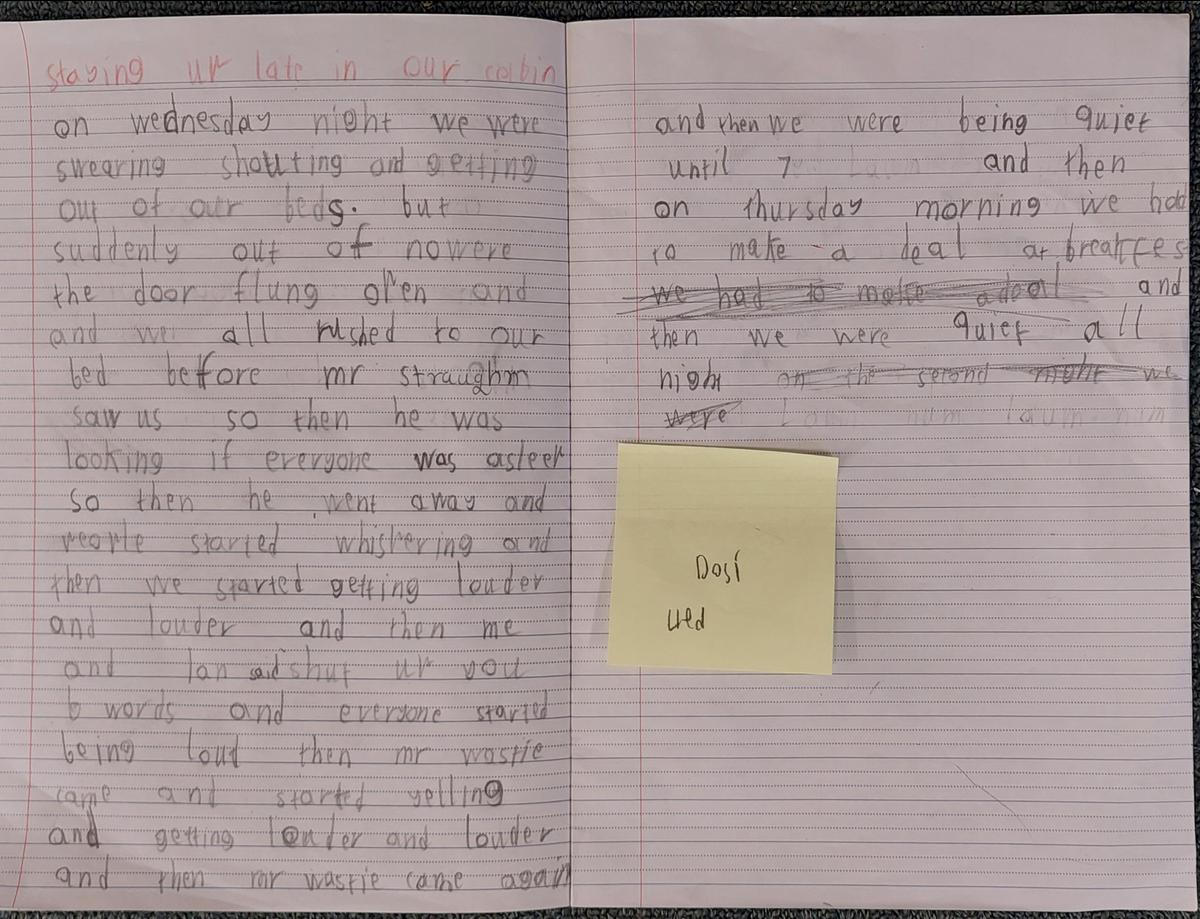 staying up late in our cabin
on wednesday night we were
swearing shouting and getting
out of our beds. but
suddenly out of nowere
the door flung open and
and we all rushed to our
bed before mr straughm
saw us so then he was
looking if everyone was asleep
so then he went away and
people started whispering and
then we started getting louder
and louder and then me
and Ian said "shut up you
b words and everyone started
being loud then mr wastie
came and started yelling
and getting louder and louder
and then mr wastie came again
and then we were being quiet
until 7 and then
on thursday morning we had
to make a deal at breakfes
we had to make a deal and
then we were quiet all
night on the second night we
were
Dosi